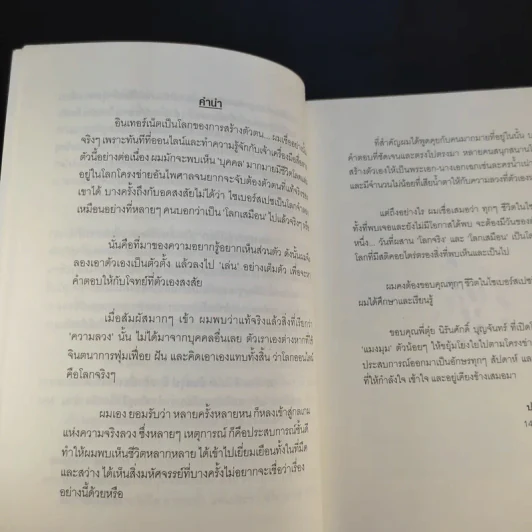 คำนำ
อินเทอร์เน็ตเป็นโลกของการสร้างตัวตน... ผมเชื่ออย่างนั้น
จริงๆ เพราะทันทีที่ออนไลน์และทำความรู้จักกับเจ้าเครื่องมือสื่อสาร
ตัวนี้อย่างต่อเนื่อง ผมมักจะพบเห็น 'บุคคล' มากมายมีชีวิตโลดแล่น
อยู่ในโลกโครงข่ายอันไพศาลจนยากจะจับต้องตัวตนที่แท้จริงของ
เขาได้ บางครั้งถึงกับอดสงสัยไม่ได้ว่า ไซเบอร์สเปซเป็นโลกจำลอง
เหมือนอย่างที่หลายๆ คนบอกว่าเป็น 'โลกเสมือน' ไปแล้วจริงๆ หรือ
นั่นคือที่มาของความอยากรู้อยากเห็นส่วนตัว ดังนั้นผมจึง
ลองเอาตัวเองเป็นตัวตั้ง แล้วลงไป 'เล่น' อย่างเต็มตัว เพื่อจะหา
คำตอบให้กับโจทย์ที่ตัวเองสงสัย
เมื่อสัมผัสมากๆ เข้า ผมพบว่าแท้จริงแล้วสิ่งที่เรียกว่า
'ความลวง' นั้น ไม่ได้มาจากบุคคลอื่นเลย ตัวเราเองต่างหากที่ใช้
จินตนาการฟุ่มเฟือย ฝัน และคิดเอาเองแทบทั้งสิ้น ว่าโลกออนไลน์
คือโลกจริงๆ
ผมเอง ยอมรับว่า หลายครั้งหลายหน ก็หลงเข้าสู่กลเกม
แห่งความจริงลวง ซึ่งหลายๆ เหตุการณ์ ก็คือประสบการณ์ชั้นดี
ทำให้ผมพบเห็นชีวิตหลากหลาย ได้เข้าไปเยี่ยมเยือนทั้งในที่มืด
และสว่าง ได้เห็นสิ่งมหัศจรรย์ที่บางครั้งไม่อยากจะเชื่อว่าเรื่อง
อย่างนี้ด้วยหรือ
ที่สำคัญผมได้พูดคุยกับคนมากมายที่อยู่ในนั้น
คำตอบที่ชัดเจนและตรงไปตรงมา หลายคนสนุกสนาน
สร้างตัวเองให้เป็นพระเอก-นางเอกเอกเช่นละครน้ำเน่า
และมีจำนวนไม่น้อยที่เสียน้ำตาให้กับความลวงที่ตัวเอง
แต่ถึงอย่างไร ผมเชื่อเสมอว่า ทุกๆ ชีวิตในไซ
ทั้งที่พบเจอและยังไม่มีโอกาสได้พบ จะต้องมีวันของ
หนึ่ง... วันที่ผสาน 'โลกจริง' และ 'โลกเสมือน' เป็นโล
โลกที่มีสติคอยไตร่ตรองสิ่งที่พบเห็นและเป็นไป
ผมคงต้องขอบคุณทุกๆ ชีวิตในไซเบอร์สเปซ
ผมได้ศึกษาและเรียนรู้
ขอบคุณพี่ตุ๋ย นิรันศักดิ์ บุญจันทร์ ที่เปิด
'แมงมุม' ตัวน้อยๆ ให้ขยุ้มโยงใยไปตามโครงข่า
ประสบการณ์ออกมาเป็นอักษรทุกๆ สัปดาห์ และ
ที่ให้กำลังใจ เข้าใจ และอยู่เคียงข้างเสมอมา
14